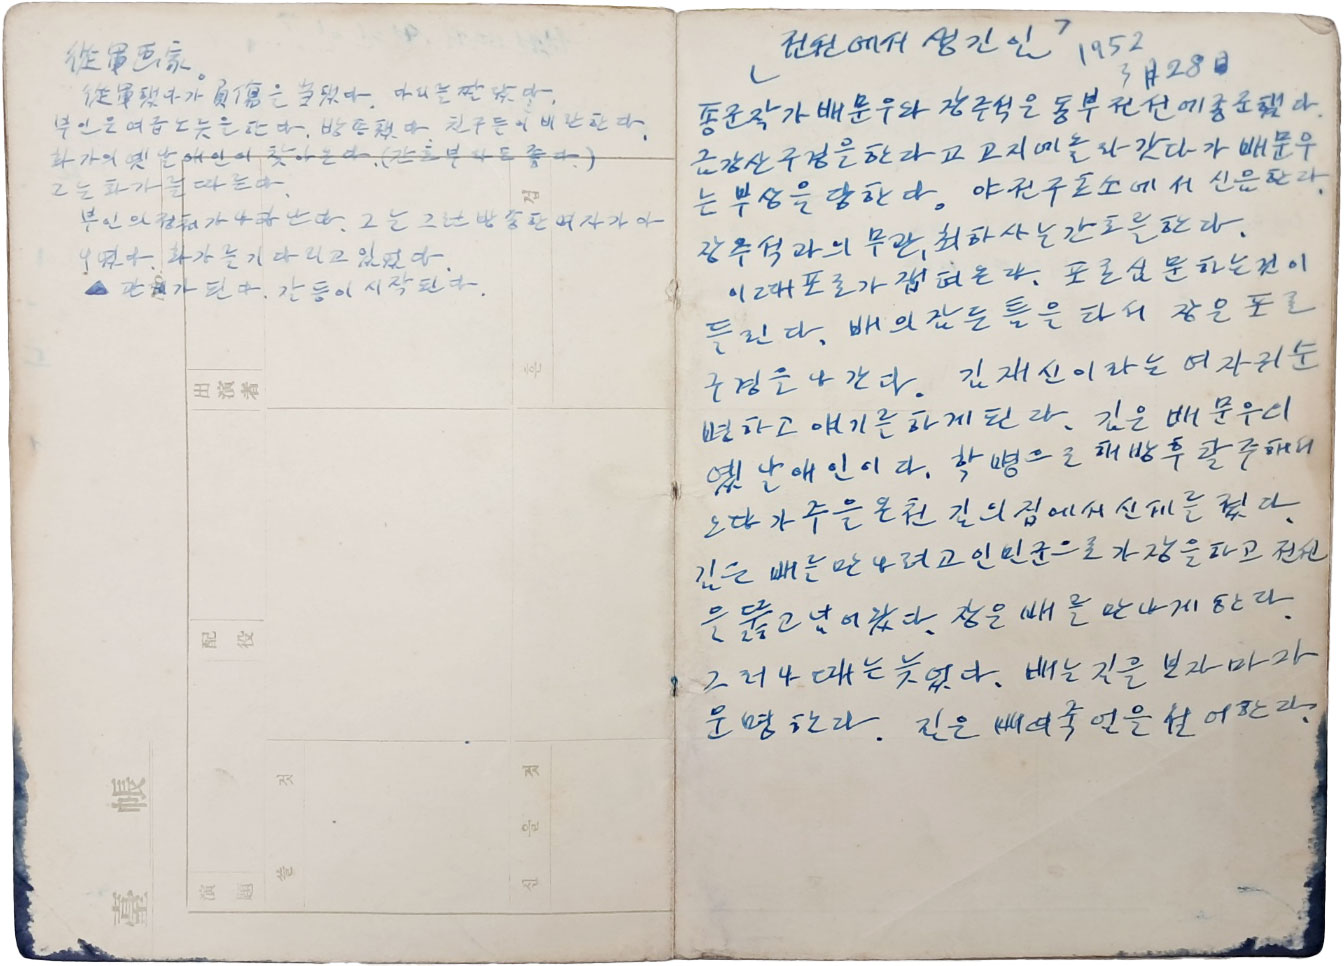 從軍画家。
從軍했다가 負傷을 당했다. 다리는 짤렸다.
부인은 여급노릇을 한다. 방송했다. 친구들이 비난한다.
화가의 옛날 애인이 찾아온다. (간호부라도 좋다.)
그는 화가를 따른다.
부인의 정체가 나타난다. 그는 그전 방송한 여자가 아
니었다. 화가를 기다리고 있었다.
▲ 관계가 된다. 갈등이 시작된다.
出演者
配役
演題
臺帳
쓸 것
신을 것
「전선에서 생긴 일」 1952
3月28日
종군작가 배문우와 장주석은 동부전선에 종군했다.
금강산 구경을 한다고 고지에 올라갔다가 배문우
는 부상을 당한다. 야전구호소에서 신음한다.
장주석과의 무관, 최하사는 간호를 한다.
이때 포로가 잽펴온다. 포로 심문하는 것이
들린다. 배의 잠든 틈을 타서 장은 포로
구경을 나간다. 김재신이라는 여자귀순
병하고 얘기를 하게 된다. 김은 배문우의
옛날 애인이다. 학병으로 해방후 탈주해서
오다가 주을온천 김의 집에서 신세를 졌다.
김은 배를 만나려고 인민군으로 가장을 하고 전선
을 뚫고 넘어왔다. 장은 배를 만나게 한다.
그러나 때는 늦었다. 배는 김을 보자마자
운명한다. 김은 배의 죽엄을 설어한다.